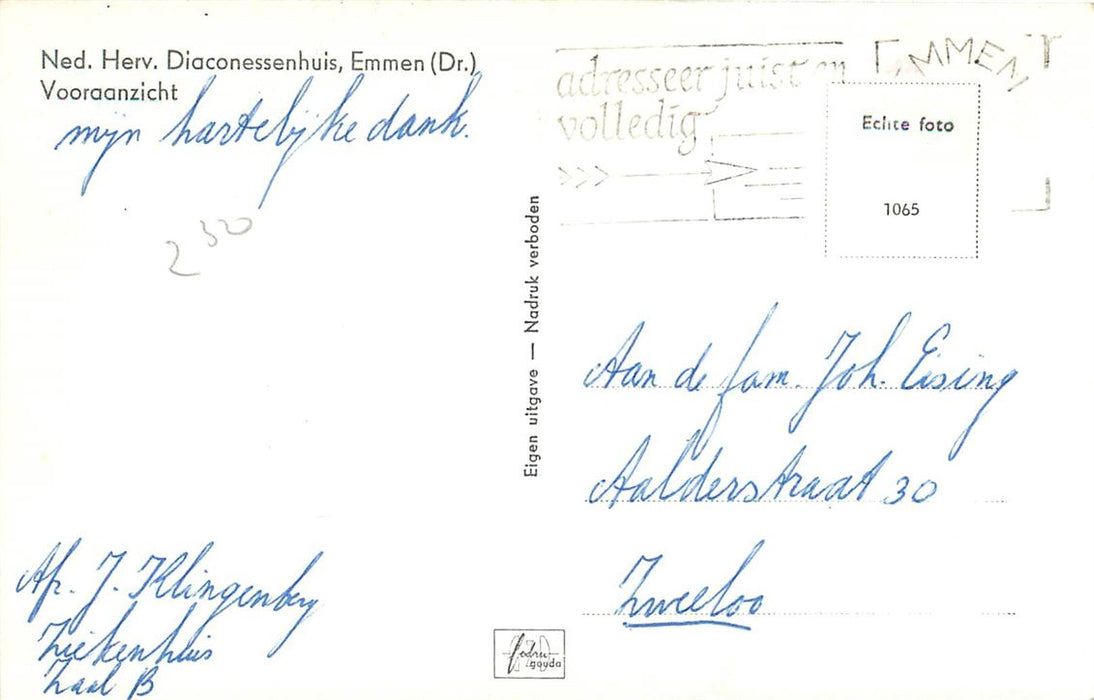 Ned. Herv. Diaconessenhuis, Emmen (Dr.)
Vooraanzicht
mijn hartelijke dank.
2 50
Afz. J. Klingenberg
Ziekenhuis
Zaal B
Eigen uitgave — Nadruk verboden
adresseer juist en
volledig
EMMEN
Echte foto
1065
Aan de fam. Joh. Eising
Aalderstraat 30
Zweeloo
gouda